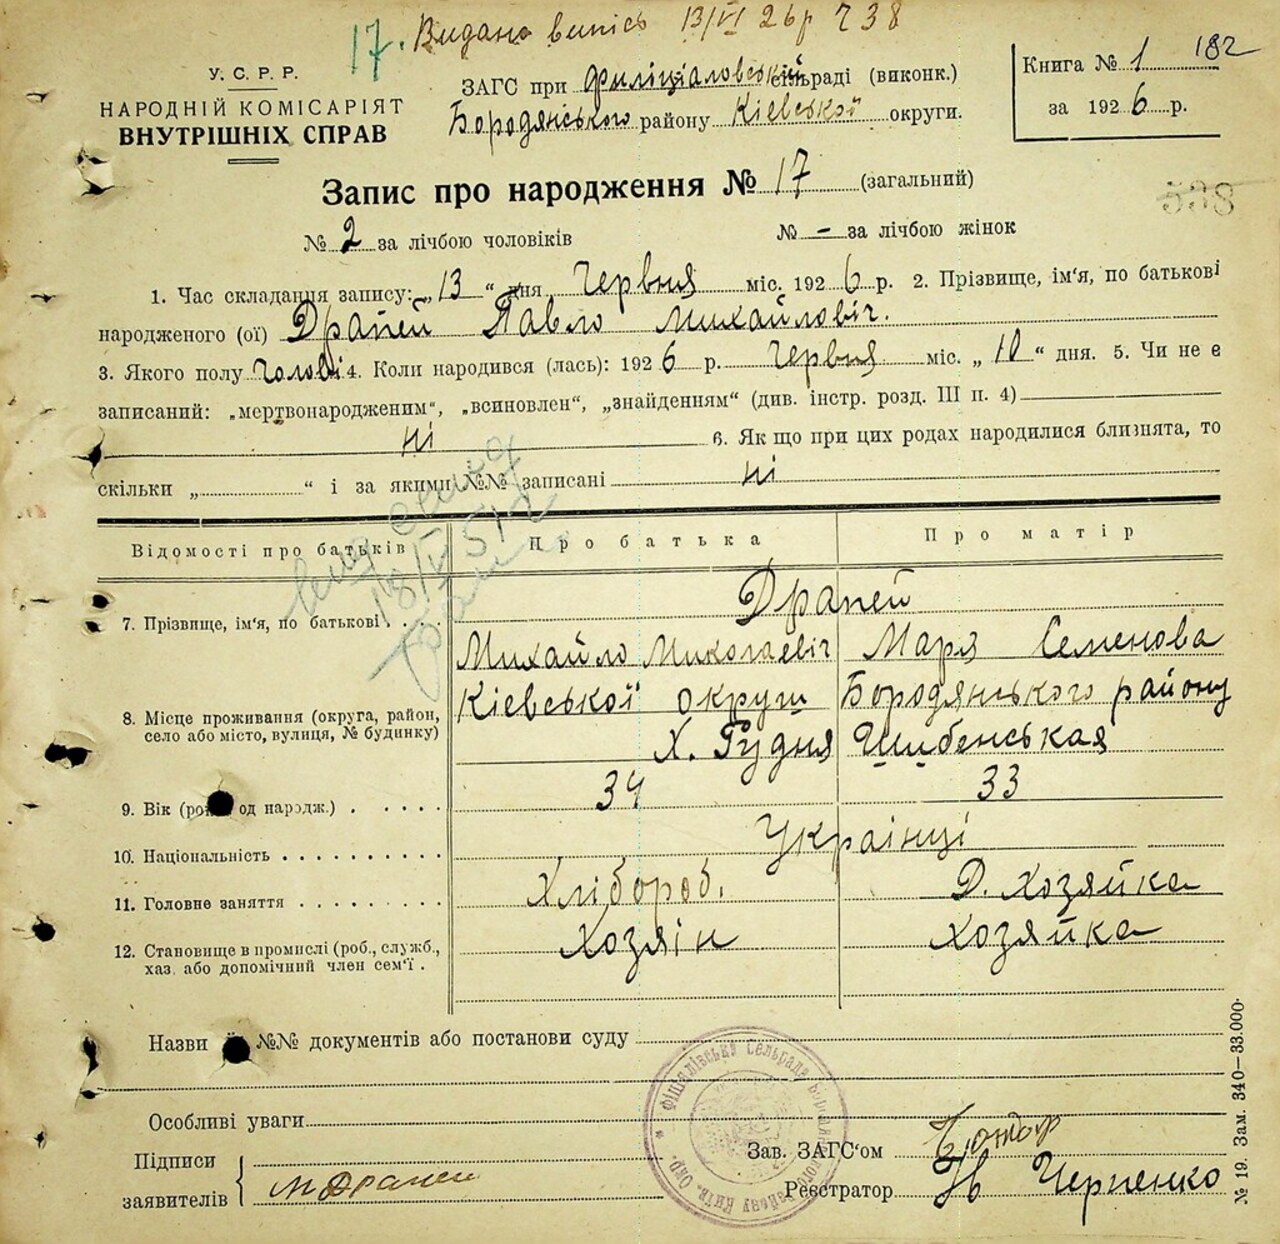 17. Видано випісь 13/VI 26 р ч 38
У. С. Р. Р.
НАРОДНІЙ КОМІСАРІЯТ
ВНУТРІШНІХ СПРАВ
ЗАГС при Филіціаловській сільраді (виконк.)
Бородянського району Кіевської округи.
Книга № 1 182
за 1926 р.
Запис про народження № 17 (загальний)
538
№ 2 за лічбою чоловіків № - за лічбою жінок
1. Час складання запису: „13“ дня Червня міс. 1926 р. 2. Прізвище, ім'я, по батькові
народженого (ої) Драпей Павло Михайловіч.
3. Якого полу Чолові 4. Коли народився (лась): 1926 р. Червня міс. „10“ дня. 5. Чи не є
записаний: „мертвонародженим“, „всиновлен“, „знайденням“ (див. інстр. розд. III п. 4)
ні 6. Як що при цих родах народилися близнята, то
скільки „ “ і за якими №№ записані ні
Відомості про батьків Про батька Про матір
Драпей
7. Прізвище, ім'я, по батькові
Михайло Миколаевіч Маря Семенова
8. Місце проживання (округа, район,
село або місто, вулиця, № будинку)
Кіевської округи Бородянького району
Х. Гудня Шибенськая
9. Вік (рок од народж.) 34 33
10. Національність Украінці
11. Головне заняття Хлібороб. Д. Хозяйка
12. Становище в промислі (роб., служб.,
хаз. або допомічний член сем'ї.
Хозяін Хозяйка
Назви й №№ документів або постанови суду
Особливі уваги
Підписи
заявителів М Драпей
Зав. ЗАГС'ом Бондар
Реєстратор Черпенко
№ 19. Зам. 340—33.000